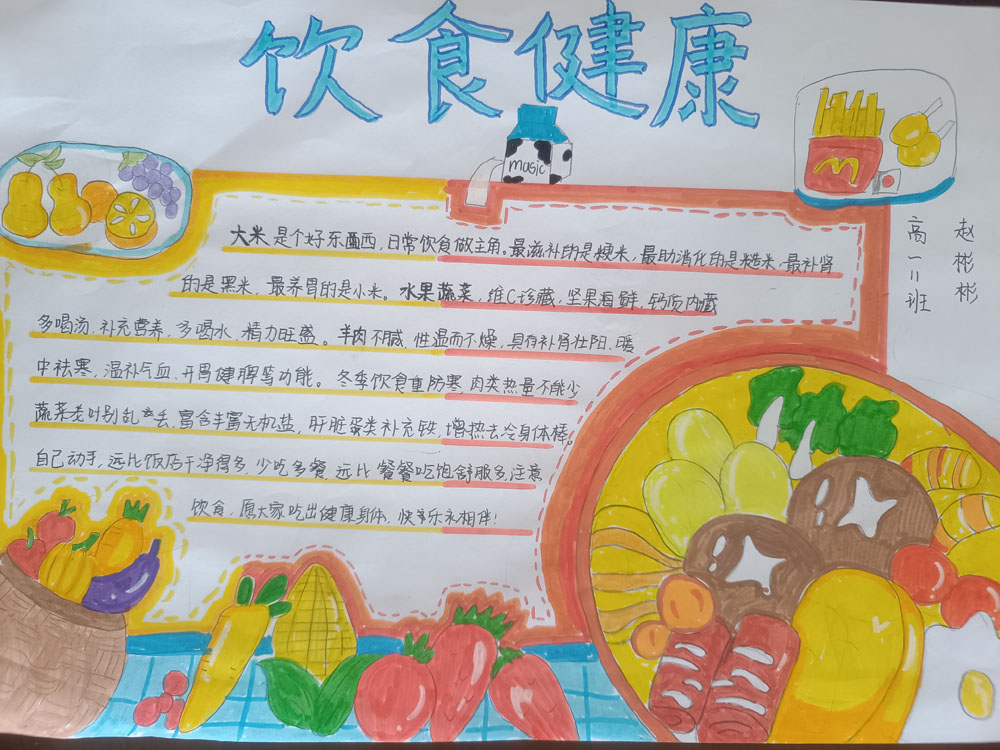 饮食健康
music
赵彬彬
高一11班
大米是个好东西,日常饮食做主角。最滋补的是粳米,最助消化的是糙米,最补肾
的是黑米,最养胃的是小米。水果蔬菜,维C珍藏,坚果海鲜,钙质内藏
多喝汤,补充营养,多喝水,精力旺盛。羊肉不腻,性温而不燥,具有补肾壮阳、暖
中祛寒,温补气血、开胃健脾等功能。冬季饮食重防寒,肉类热量不能少
蔬菜老叶别乱丢,富含丰富无机盐,肝脏蛋类补充铁,增热去冷身体棒。
自己动手,远比饭店干净得多,少吃多餐,远比餐餐吃饱舒服多,注意
饮食,愿大家吃出健康身体,快乐永相伴!